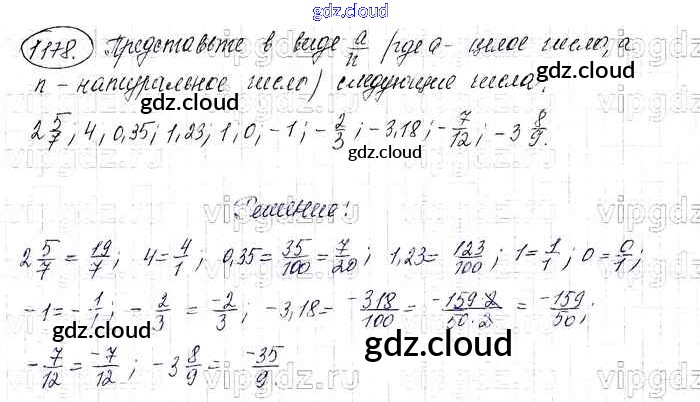 gdz.cloud
1178. Представьте в виде a/n (где a - целое число, а
n - натуральное число) следующие числа:
gdz.cloud gdz.cloud
2 5/7; 4; 0,35; 1,23; 1; 0; -1; -2/3; -3,18; -7/12; -3 8/9.
gdz.cloud
vipgdz.ru vipgdz.ru
Решение:
2 5/7 = 19/7; 4 = 4/1; 0,35 = 35/100 = 7/20; 1,23 = 123/100; 1 = 1/1; 0 = 0/1;
-1 = -1/1; -2/3 = -2/3; -3,18 = -318/100 = -159·2/50·2 = -159/50;
gdz.cloud gdz.cloud
-7/12 = -7/12; -3 8/9 = -35/9.